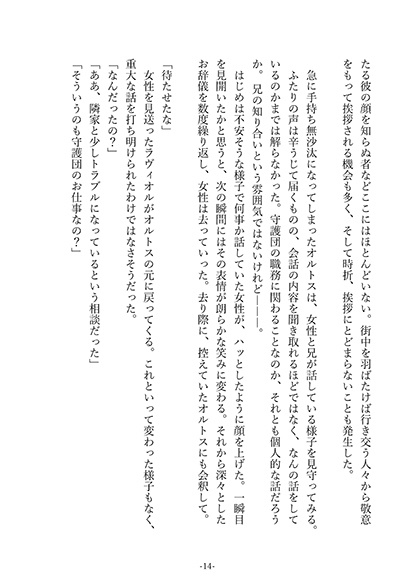 たる彼の顔を知らぬ者などここにはほとんどいない。街中を羽ばたけば行き交う人々から敬意
をもって挨拶される機会も多く、そして時折、挨拶にとどまらないことも発生した。
　急に手持ち無沙汰になってしまったオルトスは、女性と兄が話している様子を見守ってみる。
　ふたりの声は辛うじて届くものの、会話の内容を聞き取れるほどではなく、なんの話をして
いるのかまでは解らなかった。守護団の職務に関わることなのか、それとも個人的な話だろう
か。兄の知り合いという雰囲気ではないけれど———。
　はじめは不安そうな様子で何事か話していた女性が、ハッとしたように顔を上げた。一瞬目
を見開いたかと思うと、次の瞬間にはその表情が朗らかな笑みに変わる。それから深々とした
お辞儀を数度繰り返し、女性は去っていった。去り際に、控えていたオルトスにも会釈して。
「待たせたな」
　女性を見送ったラヴィオルがオルトスの元に戻ってくる。これといって変わった様子もなく、
重大な話を打ち明けられたわけではなさそうだった。
「なんだったの？」
「ああ、隣家と少しトラブルになっているという相談だった」
「そういうのも守護団のお仕事なの？」
-14-